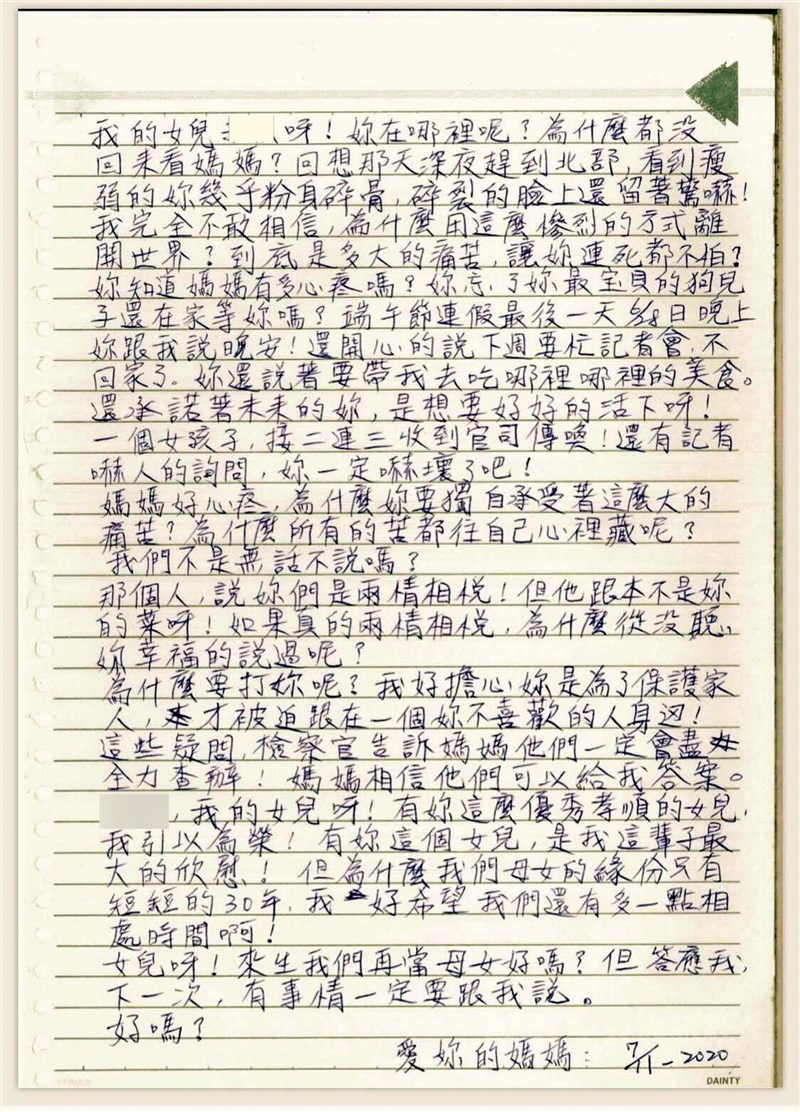 我的女兒 呀！妳在哪裡呢？為什麼都没
回来看媽媽？回想那天深夜趕到北部，看到瘦
弱的妳幾乎粉身碎骨，碎裂的臉上還留著驚嚇！
我完全不敢相信，為什麼用這麼慘烈的方式離
開世界？到底是多大的痛苦，讓妳連死都不怕？
妳知道媽媽有多心疼嗎？妳忘了妳最宝貝的狗兒
子還在家等妳嗎？端午節連假最後一天 日晚上
妳跟我說晚安！還開心的說下週要忙記者會，不
回家了。妳還說著要帶我去吃哪裡哪裡的美食。
還承諾著未來的妳，是想要好好的活下呀！
一個女孩子，接二連三收到官司傳喚！還有記者
嚇人的詢問，妳一定嚇壞了吧！
媽媽好心疼，為什麼妳要獨自承受著這麼大的
痛苦？為什麼所有的苦都往自己心裡藏呢？
我們不是無話不說嗎？
那個人，說妳們是兩情相悅！但他跟本不是妳
的菜呀！如果真的兩情相悅，為什麼從没聽
妳幸福的說過呢？
為什麼要打妳呢？我好擔心妳是為了保護家
人，才被迫跟在一個妳不喜歡的人身边！
這些疑問，檢察官告訴媽媽他們一定會盡
全力查辦！媽媽相信他們可以給我答案。
，我的女兒呀！有妳這麼優秀孝順的女兒，
我引以為榮！有妳這個女兒，是我這輩子最
大的欣慰！但為什麼我們母女的緣份只有
短短的30年，我好希望我們還有多一點相
處時間啊！
女兒呀！來生我們再當母女好嗎？但答應我，
下一次，有事情一定要跟我說。
好嗎？
愛妳的媽媽： 7/11-2020
DAINTY